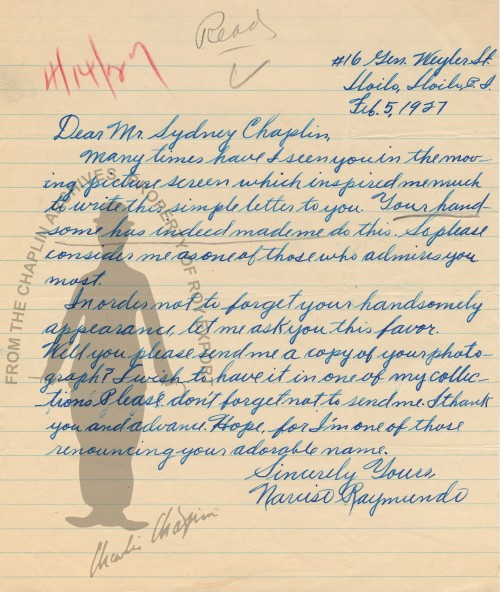 4/14/27
Read
#16 Gen. Weyler St.
Iloilo, Iloilo, P.I.
Feb. 5, 1927
Dear Mr. Sydney Chaplin,
Many times have I seen you in the mov-
ing picture screen which inspired me much
to write this simple letter to you. Your hand-
some has indeed made me do this. So please
consider me as one of those who admires you
most.
In order not to forget your handsomely
appearance, let me ask you this favor.
Will you please send me a copy of your photo-
graph? I wish to have it in one of my collec-
tions. Please don't forget not to send me. I thank
you and advance. Hope, for I'm one of those
renouncing your adorable name.
Sincerely Yours,
Narciso Raymundo
FROM THE CHAPLIN ARCHIVES. PROPERTY OF ROY EXPORT
Charlie Chaplin